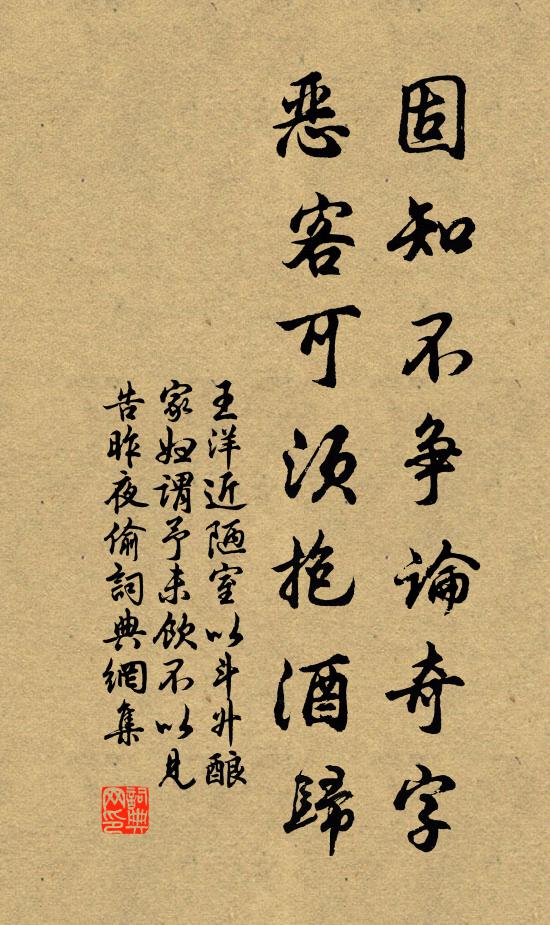 固知不争論奇字
恶客可須抱酒歸
王洋近陋室以斗升酿
家妇谓予未饮不以見
告昨夜偷詞典網集
詞典網印